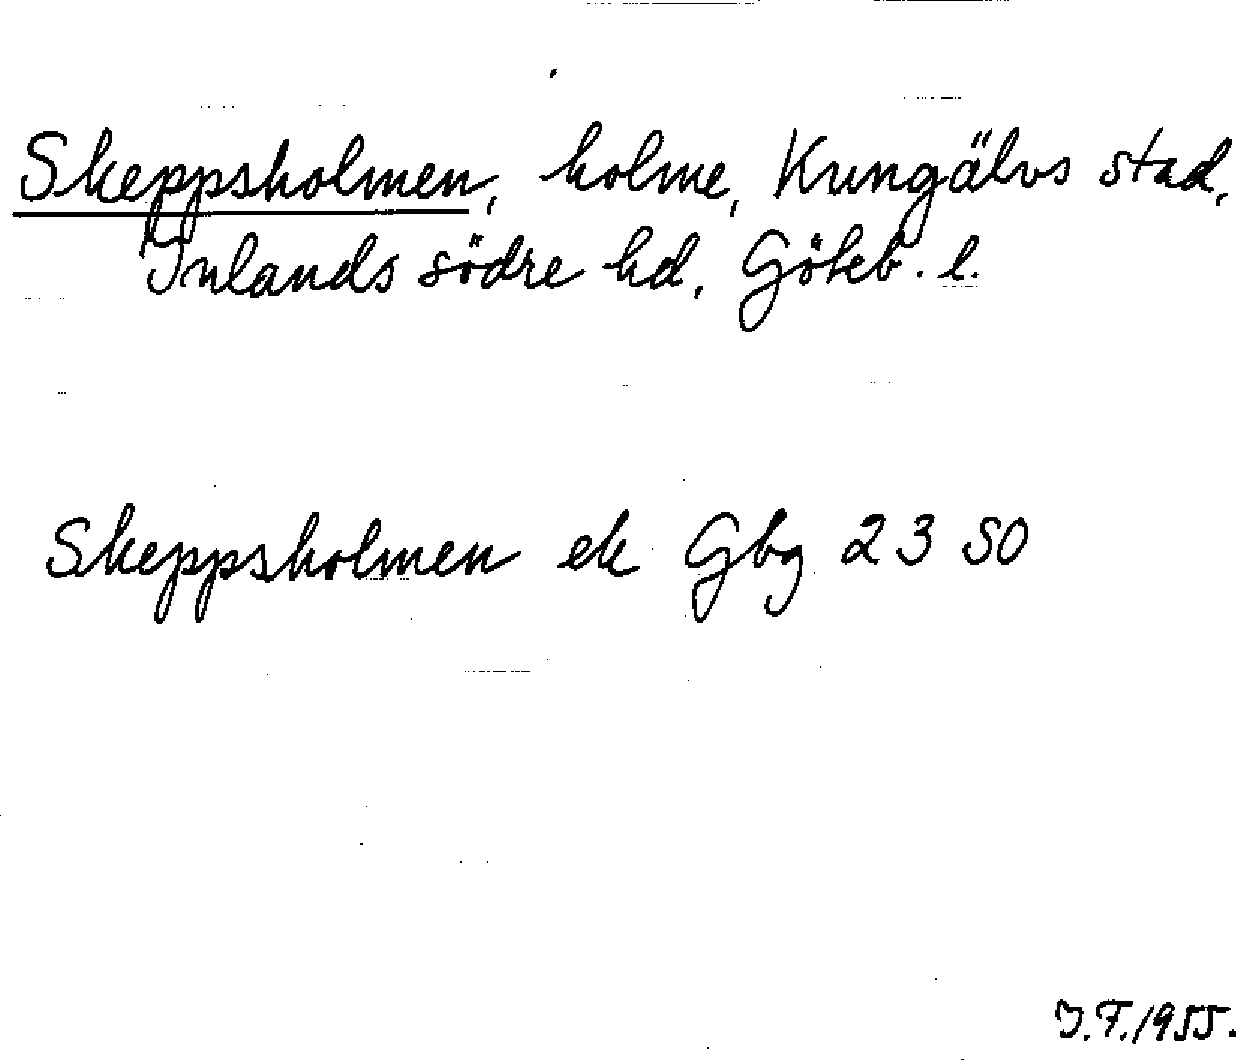 Skeppsholmen, holme, Kungälvs stad,
Inlands södre hd, Göteb. l.
Skeppsholmen ek Gbg 23 SO
J.F./1955.